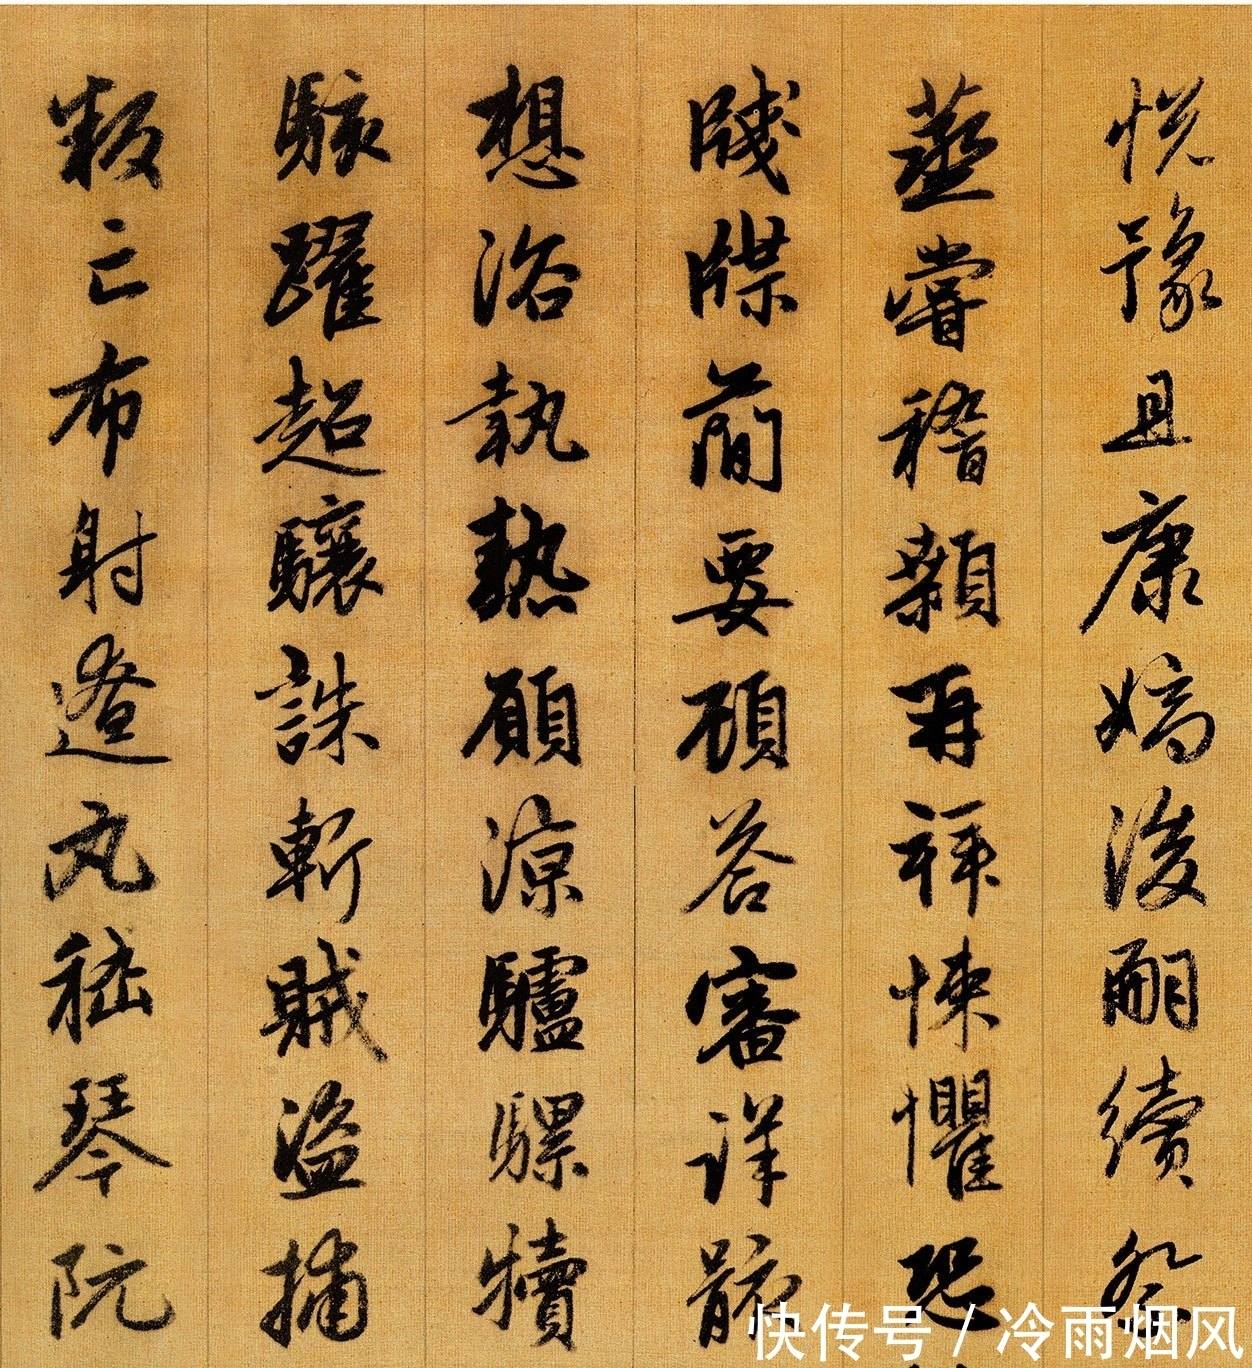 悦豫且康嫡後嗣續祭
蒸嘗稽顙再拜悚懼恐
牋牒簡要顧答審詳骸
想浴執熱願涼驢騾犢
駭躍超驤誅斬賊盜捕
叛亡布射遼丸嵇琴阮
快传号 / 冷雨烟风